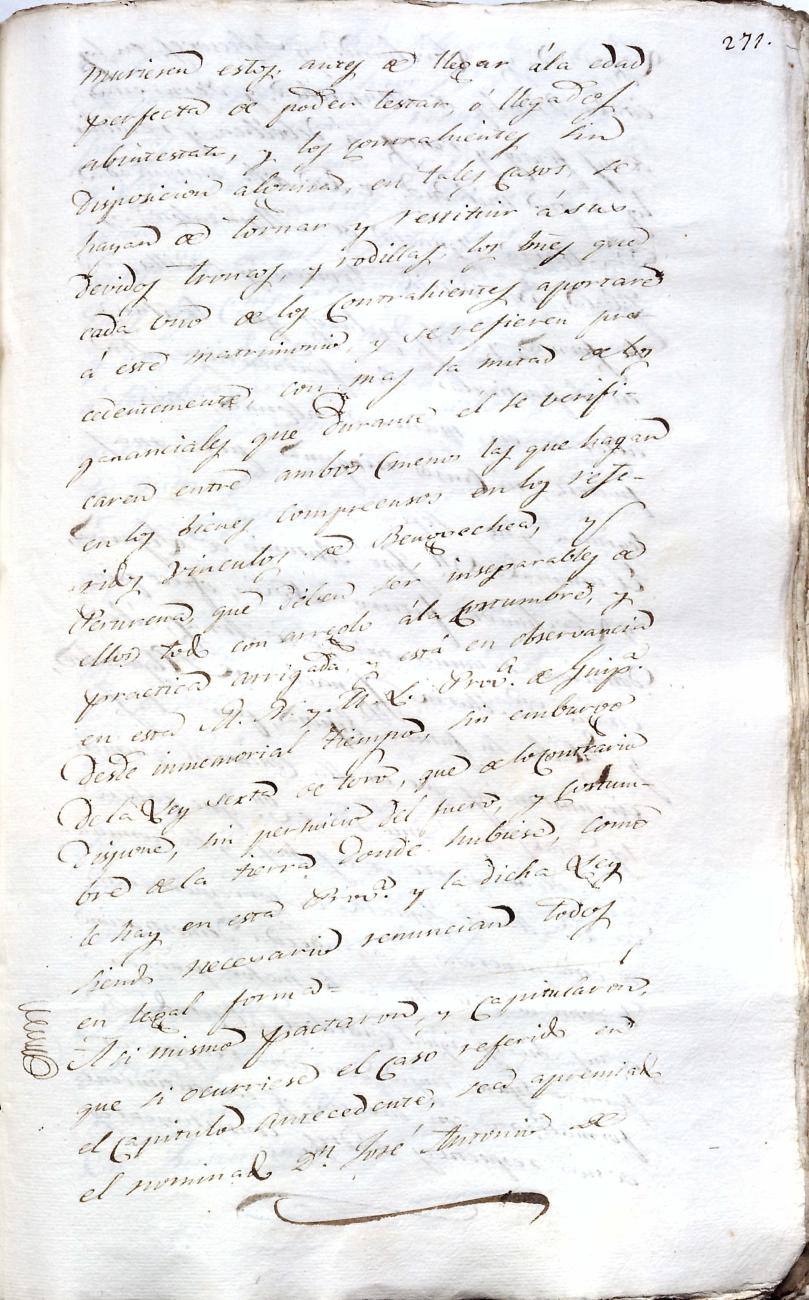 271.
muriesen estos, antes de llegar á la edad
perfecta de poder testar, ó llegados
abintestato, y los contrahientes sin
disposicion alguna, en tales casos, se
hayan de tornar y restituir á sus
devidos troncos, y rodillas, los bns que
cada uno de los Contrahientes aportare
á este matrimonio, y se refieren pre-
cedentemente, con mas la mitad de los
gananciales que durante el se verifi-
caren entre ambos (menos las que hagan
en los bienes comprensos en los refe-
ridos vinculos de y
que deben ser inseparables de
ellos) todo con arreglo á la costumbre, y
practica arrigada, y está en observancia
en esta M. N. y M. L. Prova. de Guipa.
desde inmemorial tiempo, sin embargo
de la Ley sexta de toro, que de lo contrario
dispone, sin perjuicio del fuero, y costum-
bre de la tierra donde hubiese, como
le hay en esta Prova. y la dicha Ley
siendo necesario renuncian todos
en legal forma =
Asi mismo pactaron, y capitularon,
que si ocurriese el Caso referido en
el Capitulo antecedente, sea apremiado
el nominado Dn. José Antonio de